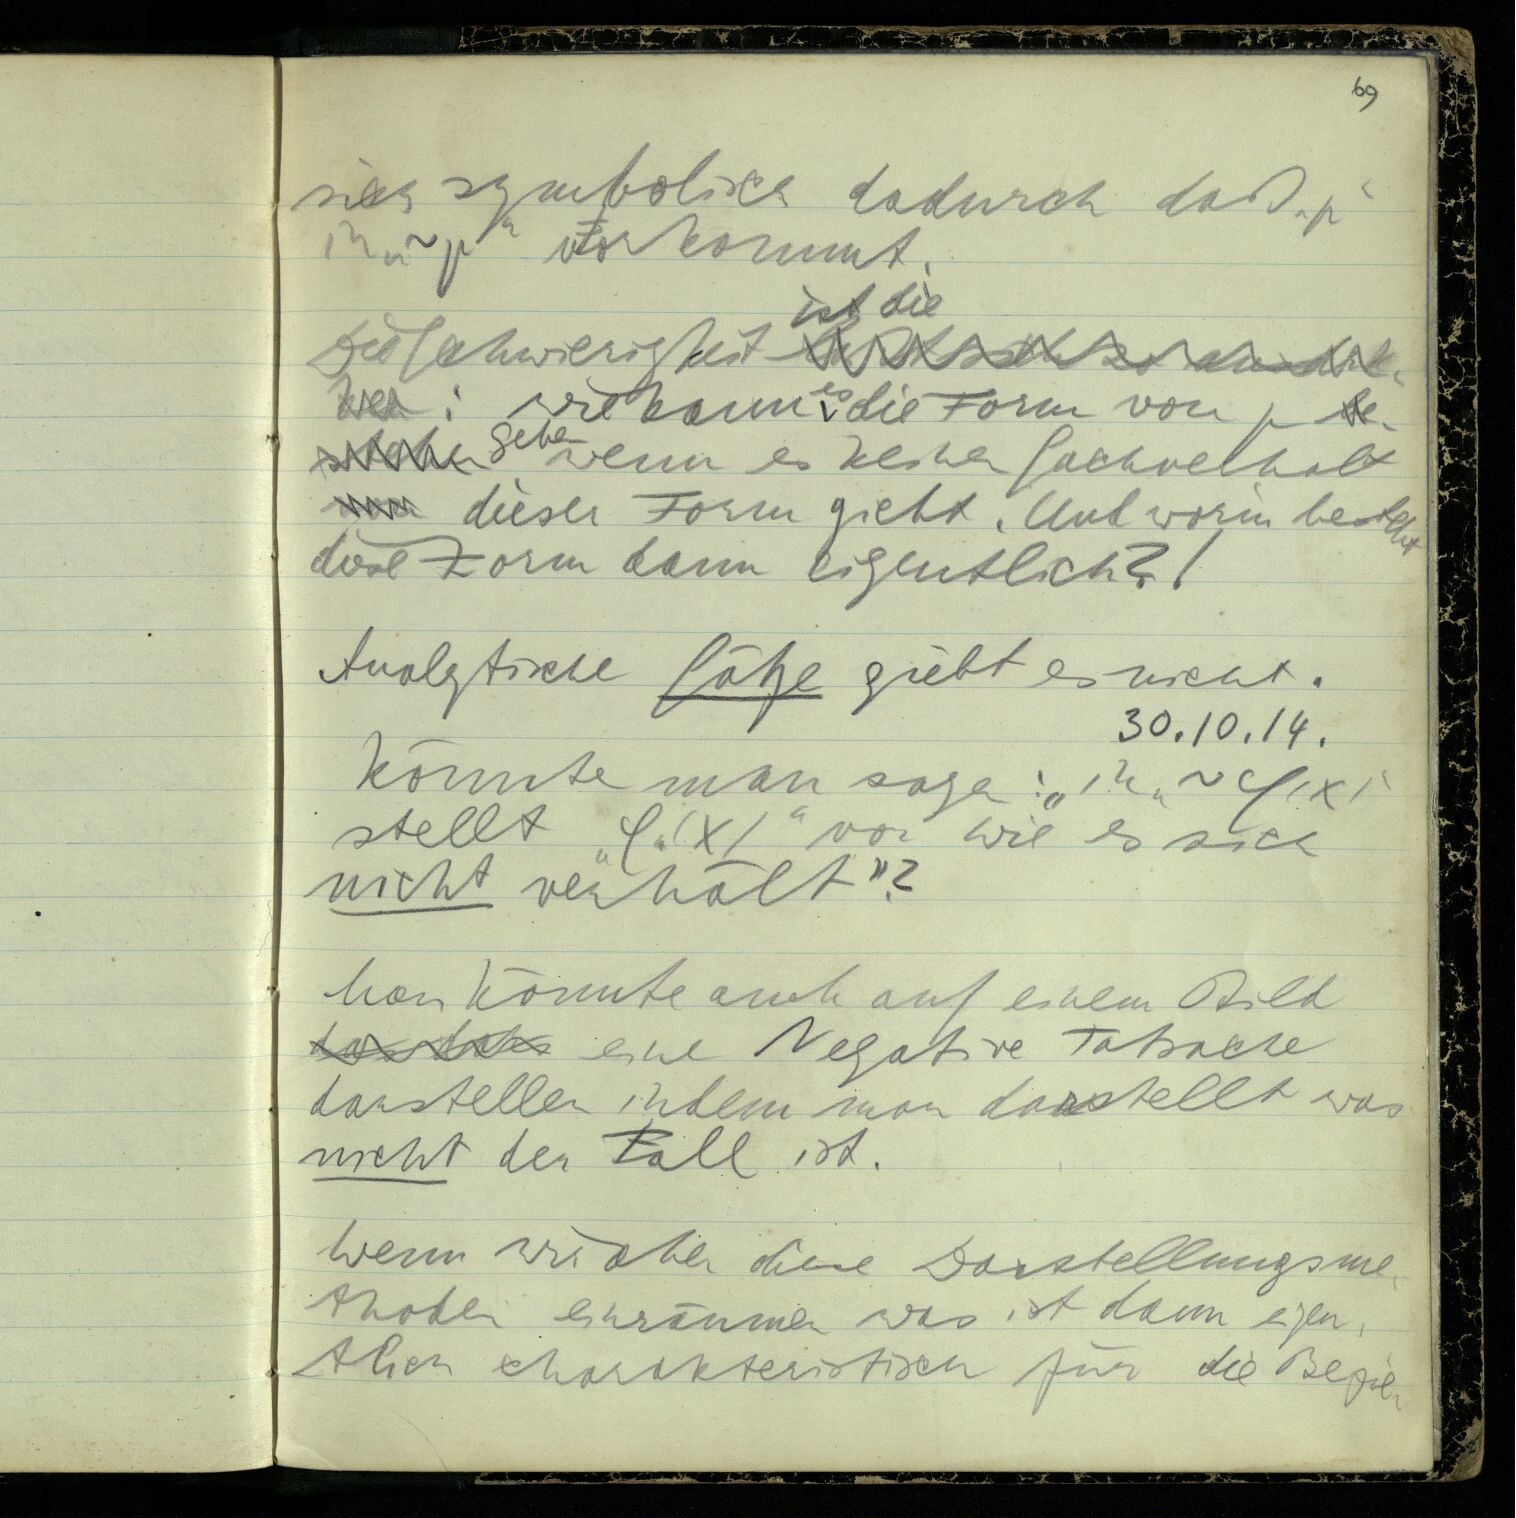 69
sich symbolisch dadurch daß „p“
in „~p“ vorkommt.
ist die
Die Schwierigkeit
ken : wie kann es die Form von p be-
stehen geben wenn es keinen Sachverhalt
dieser Form giebt. Und worin besteht
diese Form dann eigentlich?!
Analytische Sätze giebt es nicht.
30.10.14.
Könnte man sagen: „in „~φ(x)“
stellt „φ(x)“ vor wie es sich
nicht verhält”?
Man könnte auch auf einem Bild
eine Negative Tatsache
darstellen indem man darstellt was
nicht der Fall ist.
Wenn wir aber diese Darstellungsme-
thoden einräumen was ist dann eigen-
tlich charakteristisch für die Bezie-